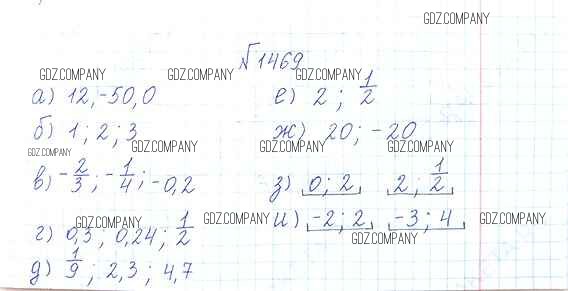 GDZ.COMPANY
№1469
GDZ.COMPANY GDZ.COMPANY GDZ.COMPANY
а) 12, -50, 0 е) 2 ; 1/2
б) 1 ; 2 ; 3 ж) 20 ; -20
GDZ.COMPANY GDZ.COMPANY GDZ.COMPANY GDZ.COMPANY
в) -2/3 ; -1/4 ; -0,2 з) 0 ; 2 2 ; 1/2
GDZ.COMPANY GDZ.COMPANY GDZ.COMPANY
г) 0,3 , 0,24 ; 1/2 и) -2 ; 2, -3 ; 4
GDZ.COMPANY
д) 1/9 ; 2,3 ; 4,7